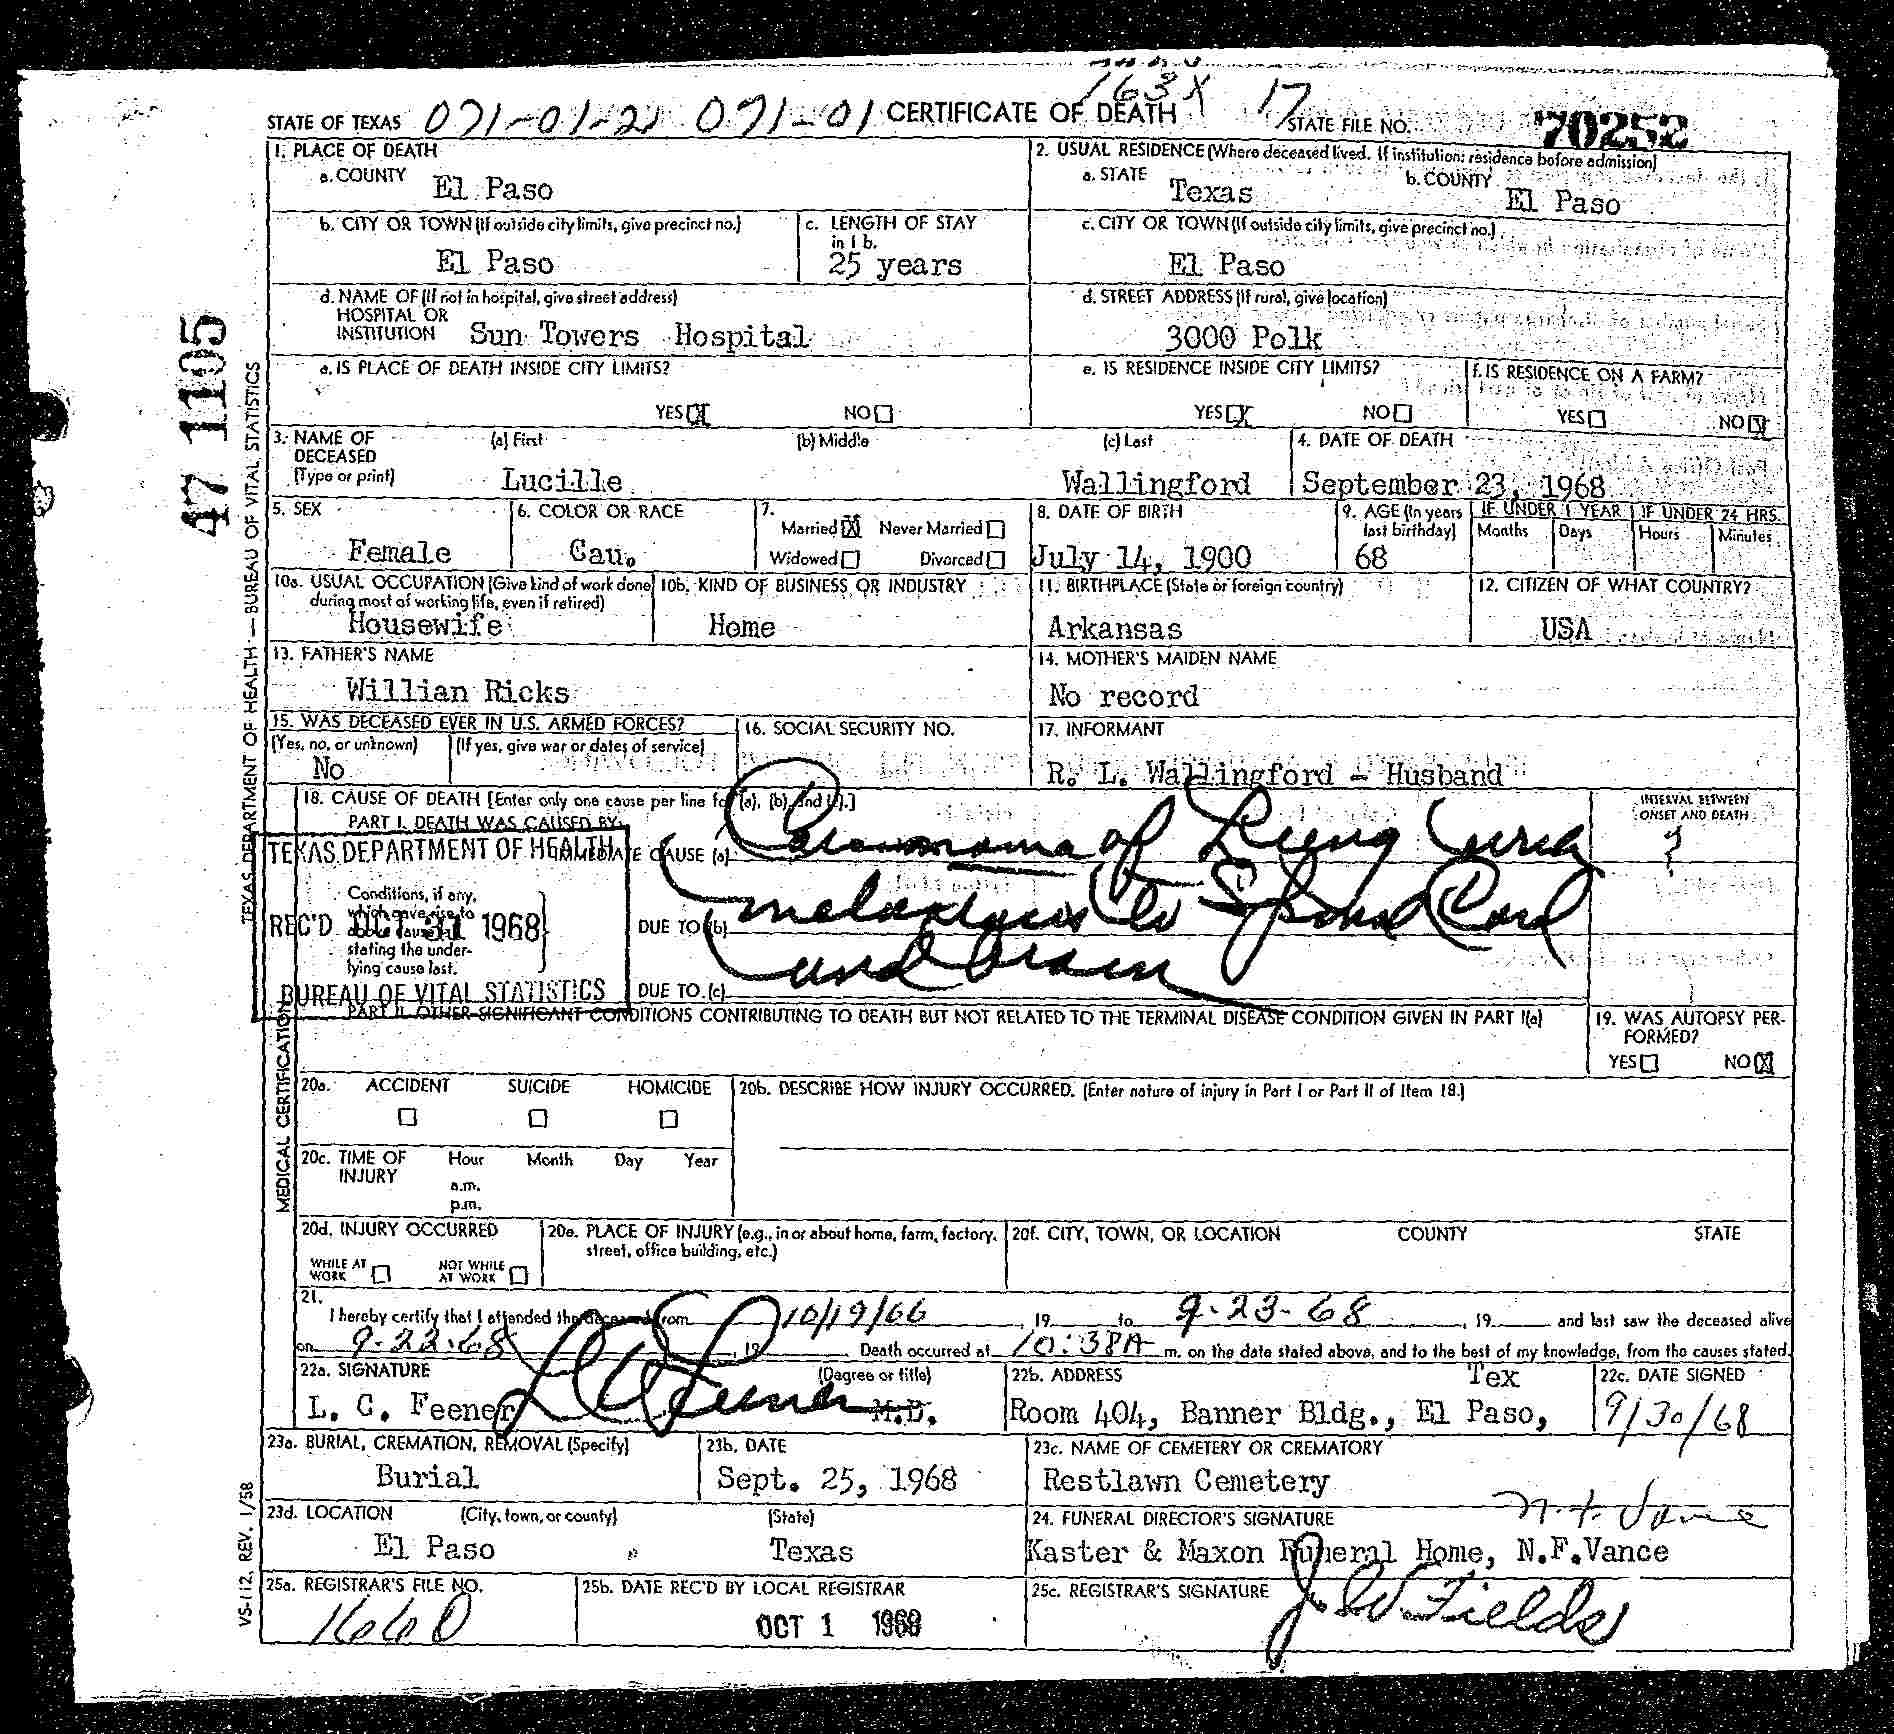 163X 17
STATE OF TEXAS 071-01-21 071-01 CERTIFICATE OF DEATH STATE FILE NO. 70252
1. PLACE OF DEATH
a. COUNTY El Paso
2. USUAL RESIDENCE (Where deceased lived. If institution: residence before admission)
a. STATE Texas b. COUNTY El Paso
b. CITY OR TOWN (If outside city limits, give precinct no.) El Paso
c. LENGTH OF STAY in 1 b. 25 years
c. CITY OR TOWN (If outside city limits, give precinct no.) El Paso
d. NAME OF (If not in hospital, give street address)
HOSPITAL OR
INSTITUTION Sun Towers Hospital
d. STREET ADDRESS (If rural, give location)
3000 Polk
e. IS PLACE OF DEATH INSIDE CITY LIMITS?
YES X NO
e. IS RESIDENCE INSIDE CITY LIMITS?
YES X NO
f. IS RESIDENCE ON A FARM?
YES NO X
3. NAME OF DECEASED (Type or print)
(a) First Lucille (b) Middle (c) Last Wallingford
4. DATE OF DEATH September 23, 1968
5. SEX Female
6. COLOR OR RACE Cau.
7. Married X Never Married
Widowed Divorced
8. DATE OF BIRTH July 14, 1900
9. AGE (In years last birthday) 68
IF UNDER 1 YEAR Months Days
IF UNDER 24 HRS. Hours Minutes
10a. USUAL OCCUPATION (Give kind of work done during most of working life, even if retired)
Housewife
10b. KIND OF BUSINESS OR INDUSTRY
Home
11. BIRTHPLACE (State or foreign country)
Arkansas
12. CITIZEN OF WHAT COUNTRY?
USA
13. FATHER'S NAME
Willian Ricks
14. MOTHER'S MAIDEN NAME
No record
15. WAS DECEASED EVER IN U.S. ARMED FORCES?
(Yes, no, or unknown) No (If yes, give war or dates of service)
16. SOCIAL SECURITY NO.
17. INFORMANT
R. L. Wallingford - Husband
18. CAUSE OF DEATH [Enter only one cause per line for (a), (b), and (c).]
PART I. DEATH WAS CAUSED BY:
IMMEDIATE CAUSE (a) Carcinoma of Lung with
Conditions, if any, which gave rise to above cause (a) stating the underlying cause last.
DUE TO (b) metastasis to Spinal Cord
DUE TO (c) and brain
INTERVAL BETWEEN ONSET AND DEATH
?
TEXAS DEPARTMENT OF HEALTH
REC'D OCT 31 1968
BUREAU OF VITAL STATISTICS
PART II. OTHER SIGNIFICANT CONDITIONS CONTRIBUTING TO DEATH BUT NOT RELATED TO THE TERMINAL DISEASE CONDITION GIVEN IN PART I(a)
19. WAS AUTOPSY PERFORMED?
YES NO X
20a. ACCIDENT SUICIDE HOMICIDE
20b. DESCRIBE HOW INJURY OCCURRED. (Enter nature of injury in Part I or Part II of Item 18.)
20c. TIME OF INJURY Hour Month Day Year
a.m.
p.m.
20d. INJURY OCCURRED
WHILE AT WORK NOT WHILE AT WORK
20e. PLACE OF INJURY (e.g., in or about home, farm, factory, street, office building, etc.)
20f. CITY, TOWN, OR LOCATION COUNTY STATE
21. I hereby certify that I attended the deceased from 10/19/66, 19 to 9-23-68, 19 and last saw the deceased alive
on 9-22-68, 19 Death occurred at 10:38A m. on the date stated above, and to the best of my knowledge, from the causes stated.
22a. SIGNATURE (Degree or title)
L. C. Feener L C Feener M.D.
22b. ADDRESS
Room 404, Banner Bldg., El Paso, Tex
22c. DATE SIGNED
9/30/68
23a. BURIAL, CREMATION, REMOVAL (Specify)
Burial
23b. DATE
Sept. 25, 1968
23c. NAME OF CEMETERY OR CREMATORY
Restlawn Cemetery
23d. LOCATION (City, town, or county) (State)
El Paso Texas
24. FUNERAL DIRECTOR'S SIGNATURE
N.F. Vance
Kaster & Maxon Funeral Home, N.F.Vance
25a. REGISTRAR'S FILE NO.
1660
25b. DATE REC'D BY LOCAL REGISTRAR
OCT 1 1968
25c. REGISTRAR'S SIGNATURE
J. W. Fields
47 1105
TEXAS DEPARTMENT OF HEALTH — BUREAU OF VITAL STATISTICS
MEDICAL CERTIFICATION
VS-112, REV. 1/58